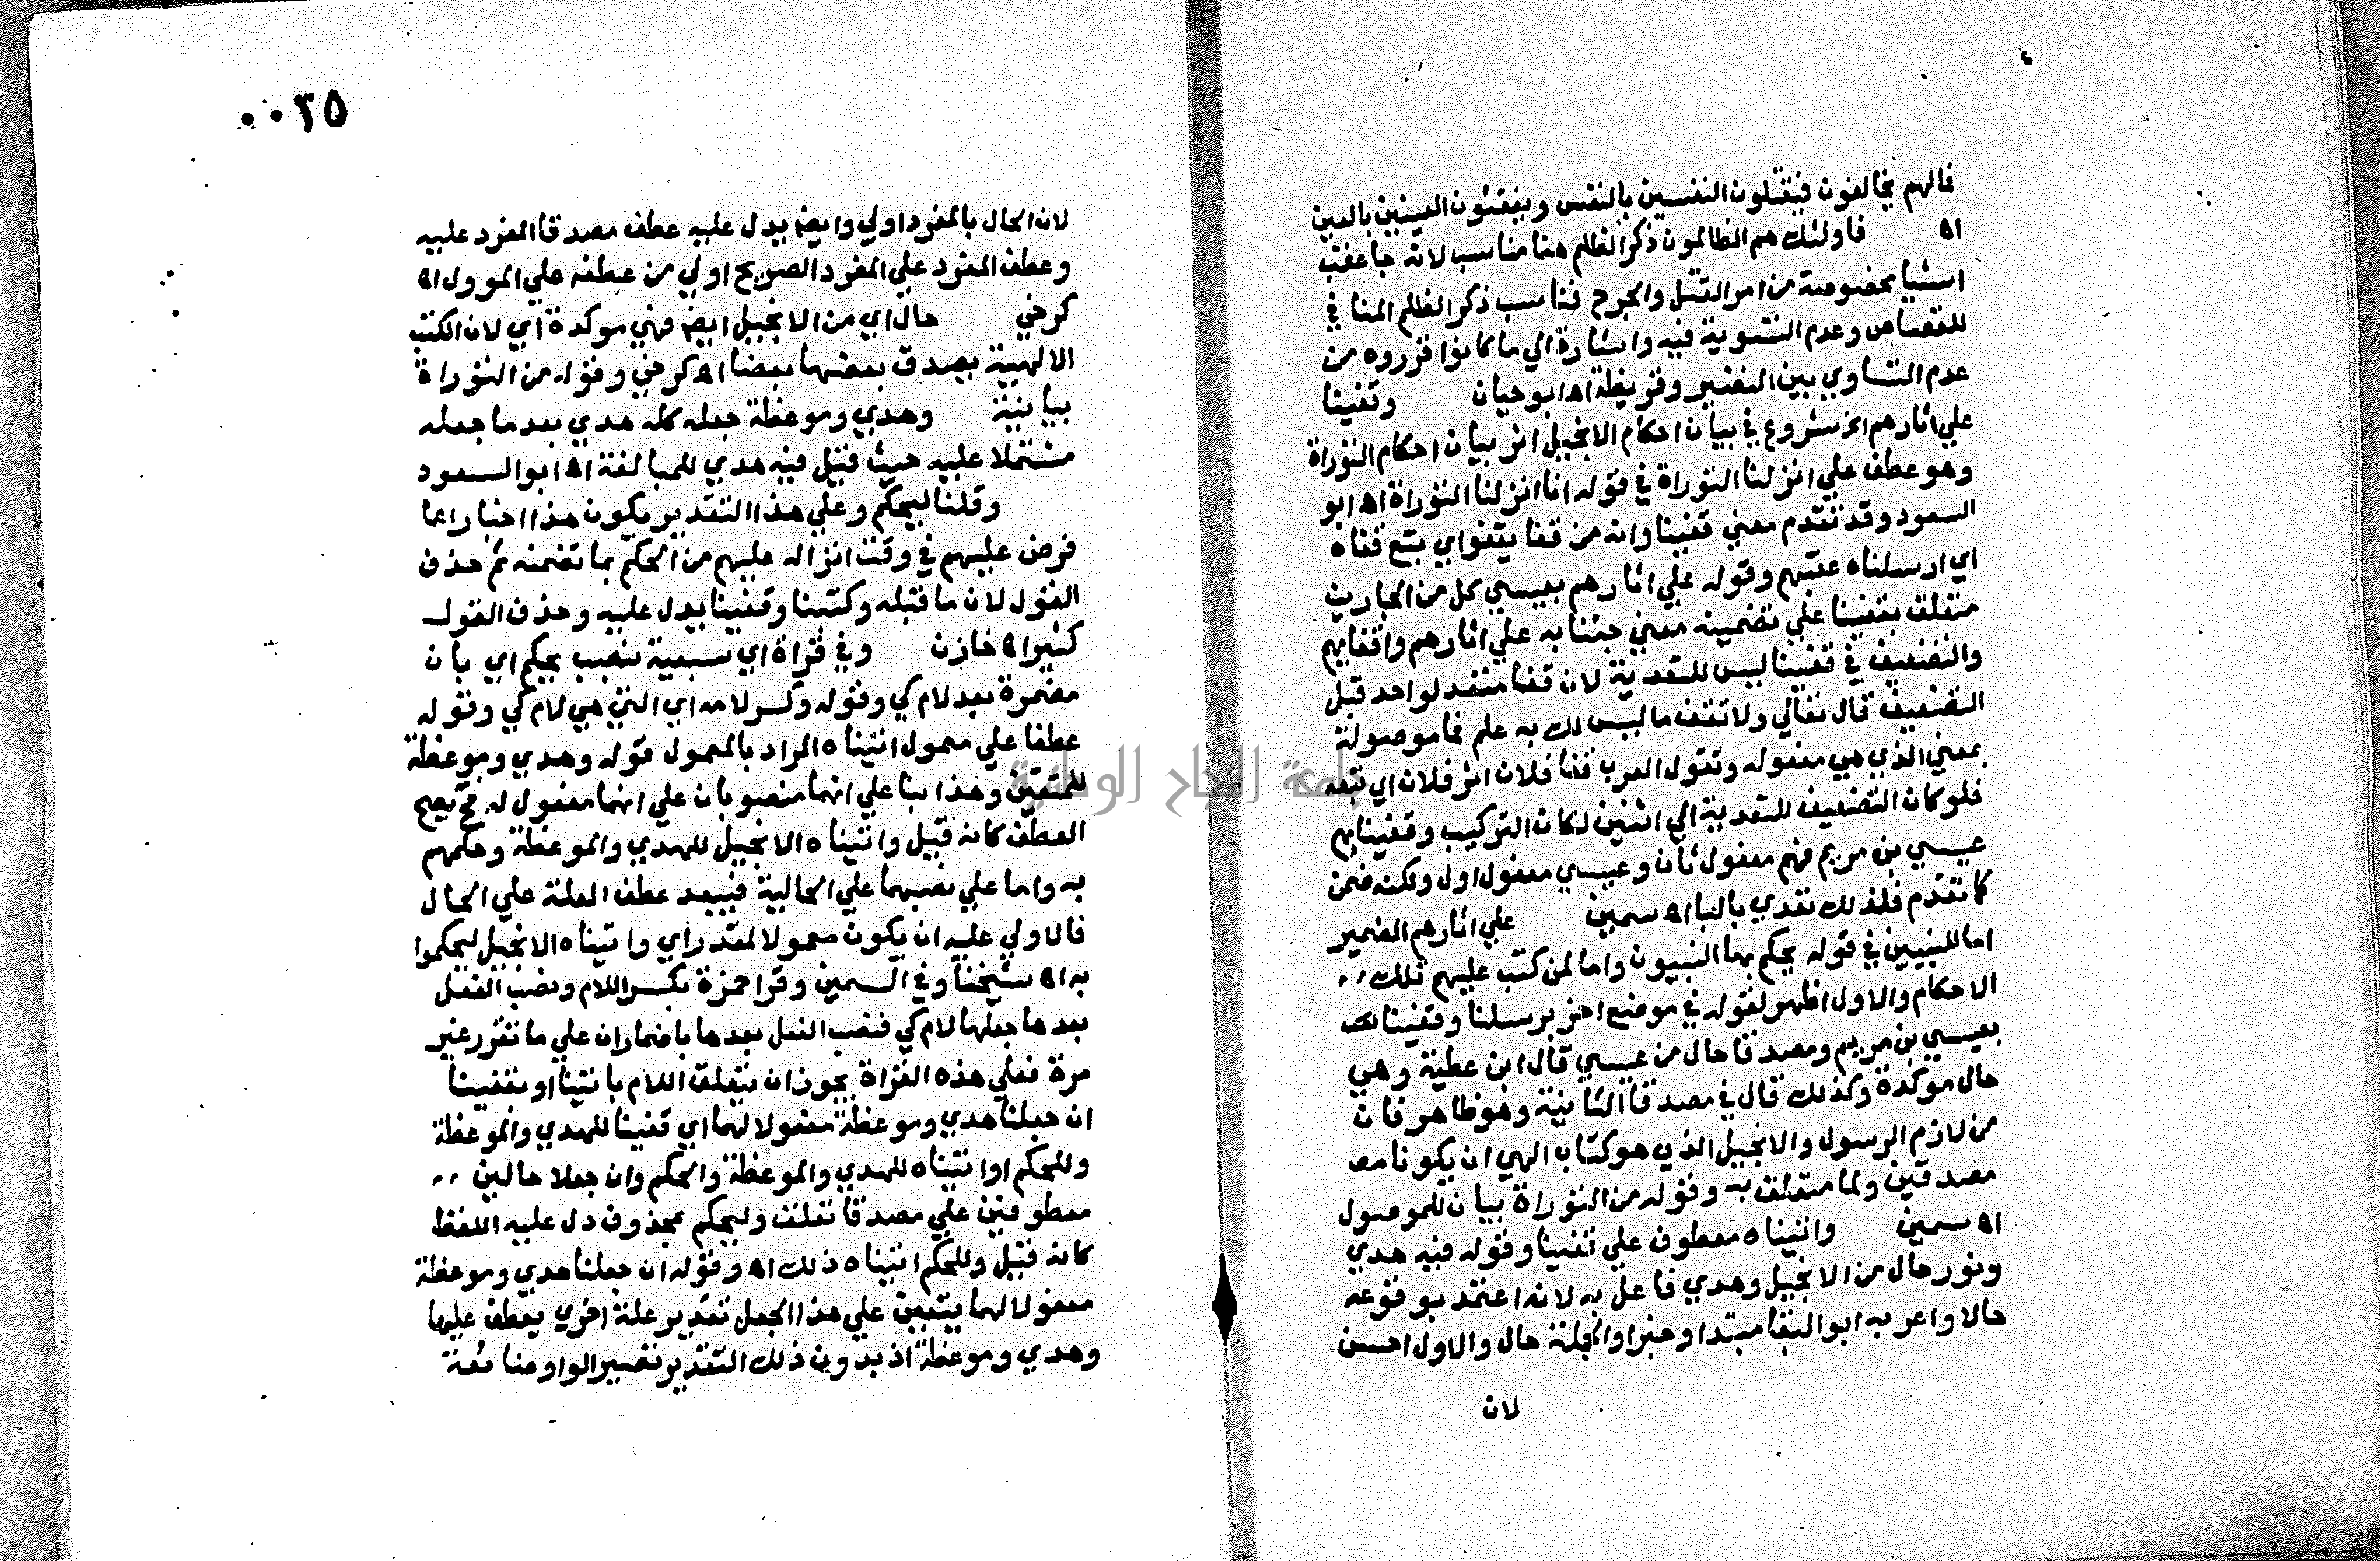 فمالهم يخالفون فيقتلون النفسين بالنفس ويفقئون العينين بالعين
اه فاولئك هم الظالمون ذكر الظلم هنا مناسب لانه جا عقب
اشيا مخصوصة من امر القتل والجرح فناسب ذكر الظلم المنافي
للقصاص وعدم التسوية فيه واشارة الي ما كانوا قرروه من
عدم التساوي بين النضير وقريظة اه ابو حيان وقفينا
علي اثارهم الخ شروع في بيان احكام الانجيل اثر بيان احكام التوراة
وهو عطف علي انزلنا التوراة في قوله انا انزلنا التوراة اه ابو
السعود وقد تقدم معني قفينا وانه من قفا يقفو اي يتبع قفاه
اي ارسلناه عقبهم وقوله علي اثارهم بعيسي كل من الجارين
متعلق بقفينا علي تضمينه معني جئنا به علي اثارهم واقفايهم
والتضعيف في قفينا ليس للتعدية لان قفا متعد لواحد قبل
التضعيف قال تعالي ولا تقف ما ليس لك به علم فما موصولة
بمعني الذي هي مفعوله وتقول العرب قفا فلان اثر فلان اي تبعه
فلو كان التضعيف للتعدية الي اثنين لكان التركيب وقفيناهم
عيسي بن مريم فهم مفعول ثان وعيسي مفعول اول ولكنه ضمن
كما تقدم فلذلك تعدي بالبا اه سمين علي اثارهم الضمير
اما للنبيين في قوله يحكم بها النبيون واما لمن كتب عليهم تلك
الاحكام والاول اظهر لقوله في موضع اخر برسلنا وقفينا
بعيسي بن مريم ومصدقا حال من عيسي قال ابن عطية وهي
حال موكدة وكذلك قال في مصدقا الثانية وهو ظاهر فان
من لازم الرسول والانجيل الذي هو كتاب الهي ان يكونا مص
مصدقين ولما متعلق به وقوله من التوراة بيان للموصول
اه سمين واتيناه معطوف علي قفينا وقوله فيه هدي
ونور حال من الانجيل وهدي فاعل به لانه اعتمد بوقوعه
حالا واعربه ابو البقا مبتدا وخبرا والجملة حال والاول احسن
لان
٠٠٣٥
لان الحال بالمفرد اولي وايضا يدل عليه عطف مصدقا المفرد عليه
وعطف المفرد علي المفرد الصريح اولي من عطفه علي الموول اه
كرخي حال اي من الانجيل ايضا فهي موكدة اي لان الكتب
الالهية يصدق بعضها بعضا اه كرخي وقوله من التوراة
بيانية وهدي وموعظة جعله كله هدي بعد ما جعله
مشتملا عليه حيث قيل فيه هدي للمبالغة اه ابو السعود
وقلنا ليحكم وعلي هذا التقدير يكون هذا اخبارا عما
فرض عليهم في وقت انزاله عليهم من الحكم بما تضمنه ثم حذف
القول لان ما قبله وكتبنا وقفينا يدل عليه وحذف القول
كثير اه خازن وفي قراة اي سبعية بنصب يحكم اي بان
مضمرة بعد لام كي وقوله وكسر لامه اي التي هي لام كي وقوله
عطفا علي معمول اتيناه المراد بالمعمول قوله وهدي وموعظة
للمتقين وهذا بنا علي انهما منصوبان علي انهما مفعول له فح يصح
العطف كانه قيل واتيناه الانجيل للهدي والموعظة وحكمهم
به واما علي نصبهما علي الحالية فيبعد عطف العلة علي الحال
فالاولي عليه ان يكون معمولا لمقدر اي واتيناه الانجيل ليحكموا
به اه شيخنا وفي السمين وقرا حمزة بكسر اللام ونصب الفعل
بعدها جعلها لام كي فنصب الفعل بعدها باضمار ان علي ما تقرر غير
مرة فعلي هذه القراة يجوز ان يتعلق اللام باتينا او بقفينا
ان جعلنا هدي وموعظة مفعولا لهما اي قفينا للهدي والموعظة
وللحكم او اتيناه للهدي والموعظة والحكم وان جعلا حالين
معطوفين علي مصدقا تعلق وليحكم بمحذوف دل عليه اللفظ
كانه قيل وللحكم اتيناه ذلك اه وقوله ان جعلنا هدي وموعظة
مفعولا لهما يتعين علي هذا الجعل تقدير علة اخري يعطف عليها
وهدي وموعظة اذ بدون ذلك التقدير تصير الواو ضائعة
جامعة النجاح الوطنية